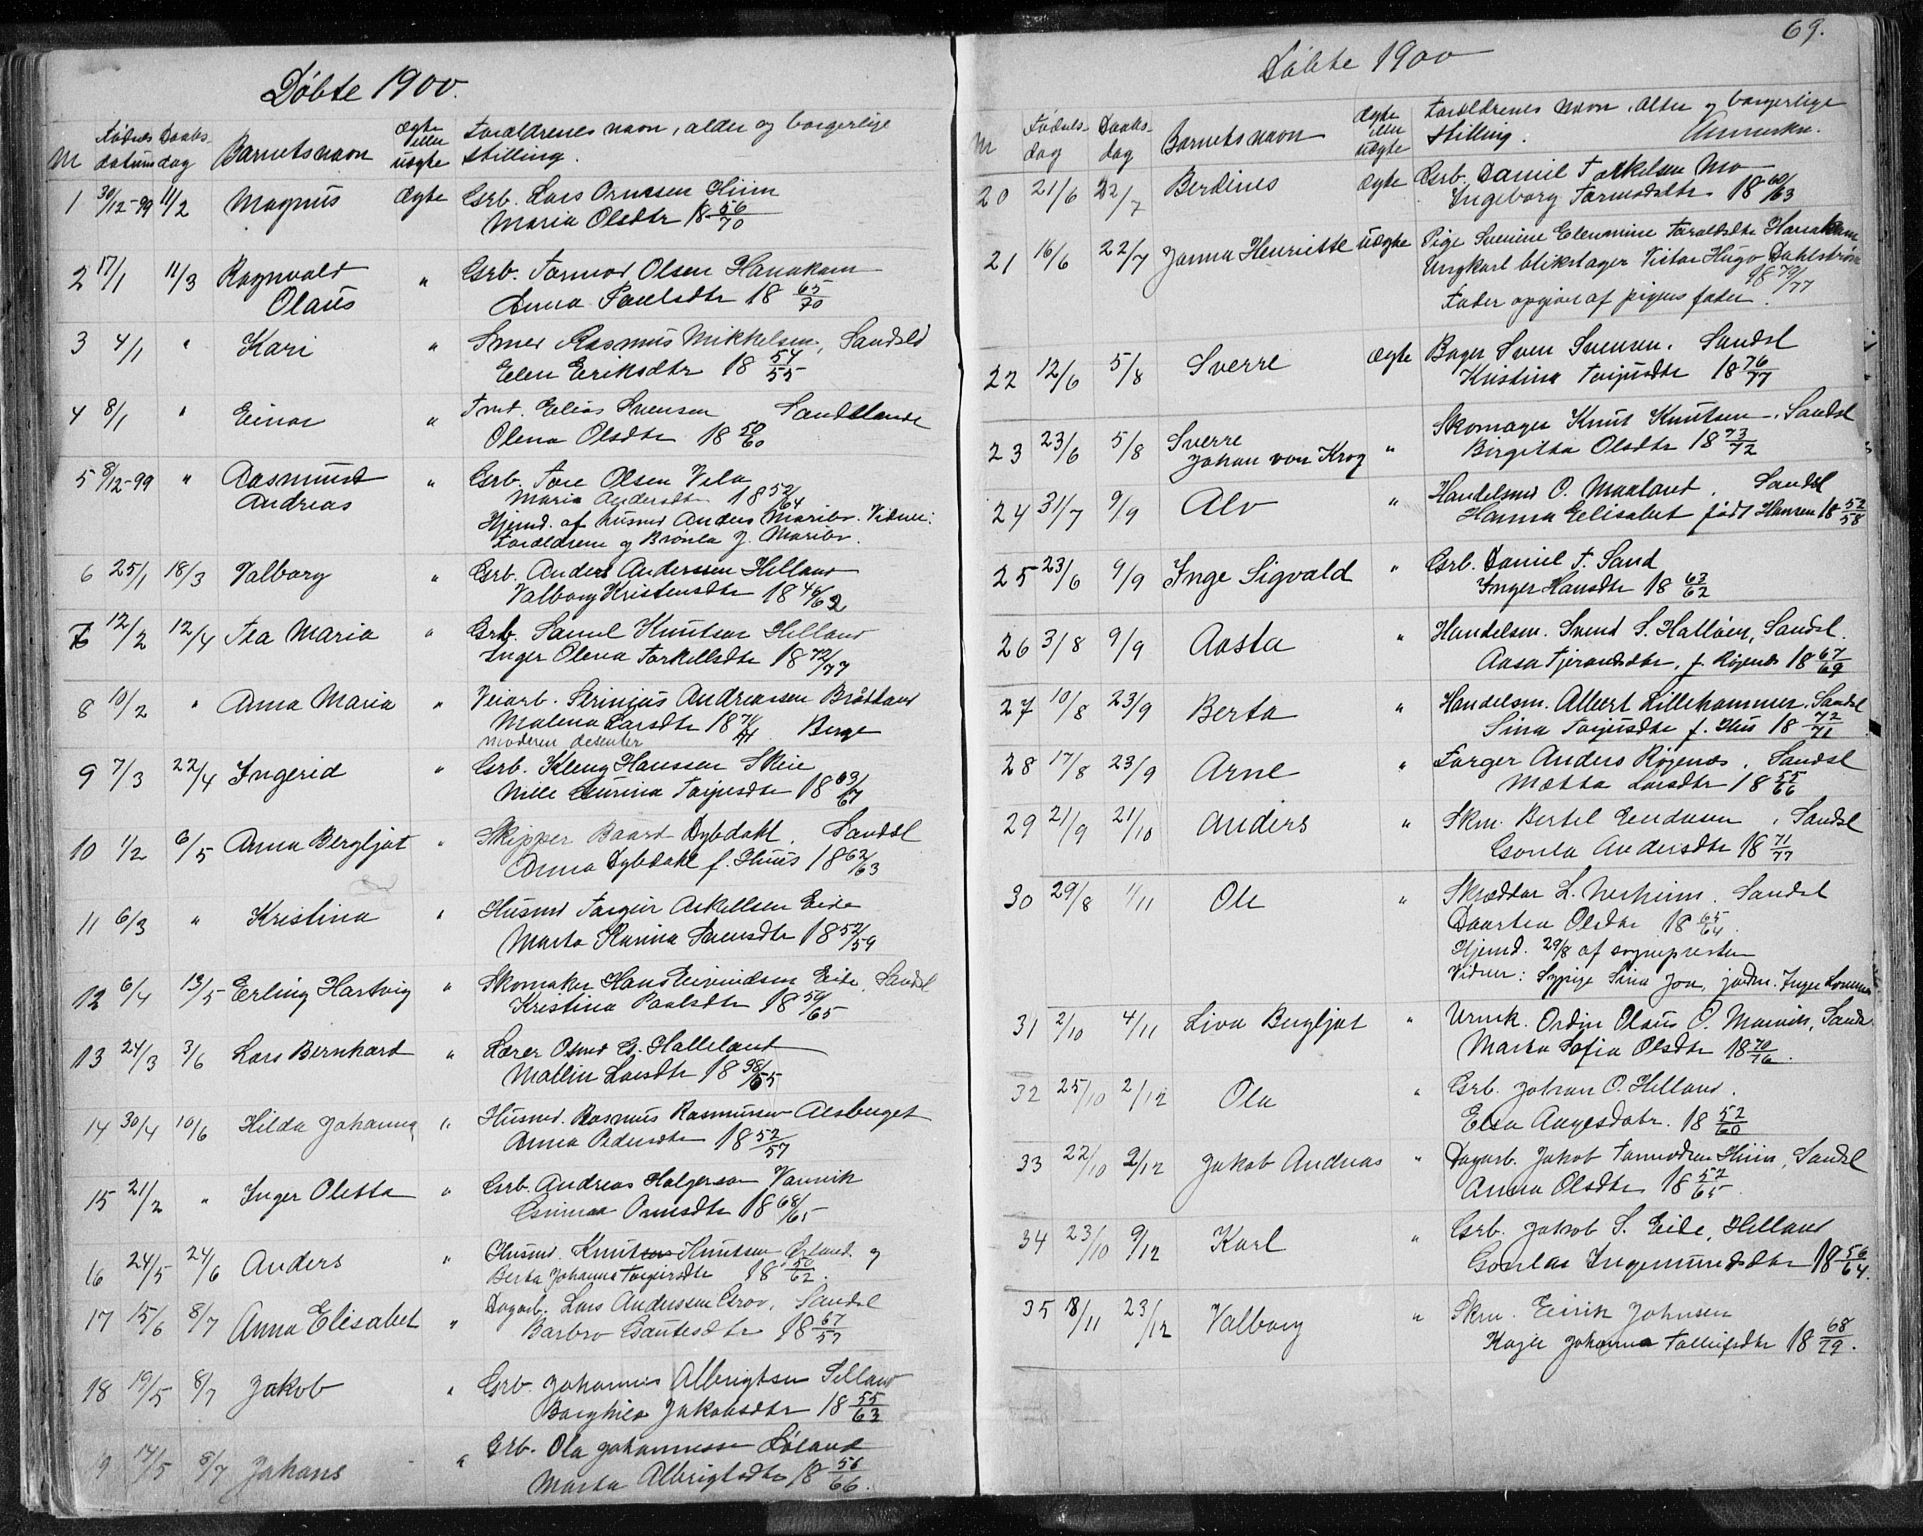 Døbte 1900.
№ Fødselsdatum Daabsdag Barnets navn Ægte eller uægte Forældrenes navn, alder og borgerlige stilling.
1 30/12-99 11/2 Magnus Ægte Grb. Lars Ornssen Hiim
Maria Olsdtr 18 56/70
2 17/1 11/3 Ragnvald Olaus " Grb. Tormod Olsen Hanakam
Anna Paulsdtr 18 65/70
3 4/1 " Kari " Smed Rasmus Mikkelsen, Sandsld
Elen Eriksdtr 18 54/55
4 8/1 " Einar " Tmd. Elias Svensen Sandslande
Olena Olsdtr 18 50/60
5 8/12-99 " Aasmund Andreas " Grb. Tore Olsen Vela
Maria Andersdtr 18 52/64
Hjemd. af husmd Anders Maribr. Vidner:
Forældrene og J. Maribr.
6 25/1 18/3 Valborg " Grb. Anders Anderssen Helland
Valborg Kristensdtr 18 46/62
7 12/2 12/4 Tea Maria " Grb. Samul Knutsen Helland
Inger Olena Torkellsdtr 18 72/77
8 10/2 " Anna Maria " Veiarb. Andreassen
Malena Larsdtr 18 Berge
Moderen desenter
9 7/3 22/4 Ingerid " Grb. Kleng Hanssen Skeie
Nille Gurina Torjusdtr 18 63/67
10 1/2 6/5 Anna Bergljot " Skipper Baard Dybdahl. Sandsl
Anna Dybdahl f. Huus 18 62/63
11 6/3 " Kristina " Husmd Torgeir Askellsen Eide
Marta Karina Svensdtr 18 52/59
12 6/4 13/5 Erling Hartvig " Skomaker Hans Eivindsen Eide, Sandsl
Kristina Paalsdtr 18 59/65
13 24/3 3/6 Lars Bernhard " Lærer Osmd G. Halleland
Mallin Larsdtr 18 38/55
14 30/4 10/6 Hilda Johanna " Husmd. Rasmus Rasmussen Alsberget
Anna Pedersdtr 18 52/57
15 21/2 " Inger Oletta " Grb. Andreas Holgersen Vannvik
Ornsdtr 18 68/65
16 24/5 24/6 Anders " Husmd. Knut Knutsen Ørland og
Berta Johanna Torgiersdtr 18 50/62.
17 15/6 8/7 Anna Elisabet " Dagarb. Lars Anderssen Grov, Sandsl
Barbro Gautesdtr 18 67/57
18 19/5 8/7 Jakob " Grb. Johannes Albrigtsen Selland
Borghild Jakobsdtr 18 55/63
19 14/5 8/7 Johans " Grb. Ola Johannessen Løland
Marta Albrigtsdtr 18 56/66.
69.
Døbte 1900
№ Fødselsdag Daabsdag Barnets navn Ægte eller uægte Forældrenes navn, alder og borgerlige stilling. Anmerkn.
20 21/6 22/7 Berdines Ægte Grb. Daniel Torkelsen Mo
Ingeborg Tormodsdtr 18 60/63
21 16/6 22/7 Janna Henriette Uægte Pige Svenine Elenmine Toraldsdtr Hanakam
Ungkarl blikslager Victor Hugo Dahlstrøm
18 70/77
Fader opgivet af pigens fader.
22 12/6 5/8 Sverre Ægte Bager Sven Svensen. Sandsl
Kristina Torjusdtr 18 76/77
23 23/6 5/8 Sverre Johan von Krog " Skomager Knut Knutsen. Sandsl
Birgitha Olsdtr 18 73/72
24 31/7 9/9 Alv " Handelsmd O. Maaland. Sandsl
Hanna Elisabet født Hansen 18 52/58
25 23/6 9/9 Inge Sigvald " Grb. Daniel T. Sand
Inger Hansdtr 18 63/62
26 3/8 9/9 Aasta " Handelsm. Svend S. Halleien, Sandsl.
Aasa Tjerandsdtr, f. Røgenes 18 67/69
27 10/8 23/9 Berta " Handelsm. Albert Lillehammer. Sandsl
Sina Torjusdtr f. Hus 18 72/71
28 17/8 23/9 Arne " Farger Anders Røgenæs. Sandsl
Mætha Larsdtr 18 55/66
29 21/9 21/10 Anders " Skm. Bertel Endresen, Sandsl
Gonla Andersdtr 18 71/77
30 29/8 1/11 Ole " Skrædder L. Nerheim. Sandsl
Daartea Olsdtr 18 65/64.
Hjemd. 29/8 af sognepresten
Vidner: Sypige Sina Joa, jordm. Inger
31 2/10 4/11 Liva Bergljot " Urmk. Ordin Olaus O. Sands
Marta Sofia Olsdtr 18 70/76.
32 25/10 2/12 Ola " Grb. Johan O. Helland.
Elsa Aagesdatr. 18 52/60
33 22/10 2/12 Jakob Andreas " Dagarb. Jakob Tormodsen Hiim, Sandsl
Anna Olsdtr 18 52/65.
34 23/10 9/12 Karl " Grb. Jakob S. Eide, Helland
Gonla Ingemundsdtr 18 56/64.
35 8/11 23/12 Valborg " Skm. Eirik Johnsen
Johanna Tollefsdtr 18 68/79.